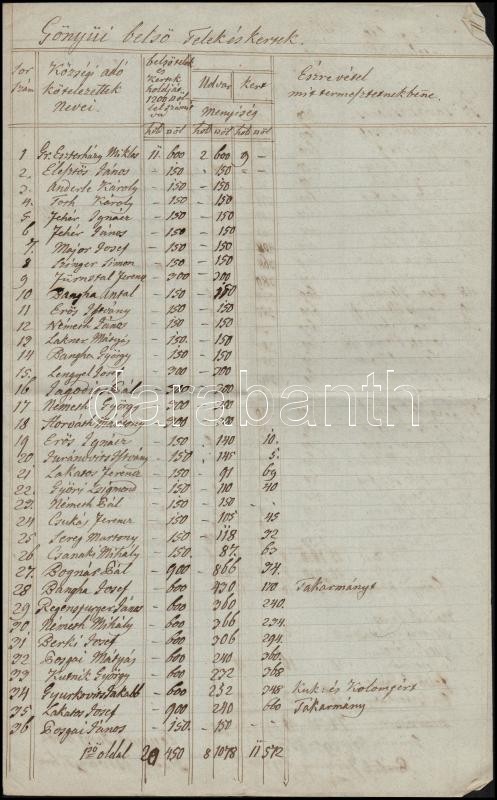 Gönyüi belső Telek és kertek.
Sor Szám Községi adó kötelezettek Nevei. belső telek és kertek holdját 1200 □öl Udvar kert Észrevétel mit termesztetnek benne
Menyiség
hol □öl hol □öl hol □öl
1 Gr. Eszterházy Miklos 11 600 2 600 9 –
2. János – 150 – 150 – –
3. Anderle Károly – 150 – 150
4. Toth Károly – 150 – 150
5 Fehér Ignácz – 150 – 150
6 Fehér János – 150 – 150
7. Major Josef – 150 – 150
8 Simon – 150 – 150
9 Fürnstal Ferencz – 300 – 300
10 Bangha Antal – 150 – 150
11 Erős Istvány – 150 – 150
12 Németh János – 150 – 150
13 Lakner Mátyás – 150. – 150
14 Bangha György – 150 – 150
15. Lengyel – 300 – 300
16 Jagodics Pál – 300 – 300
17 Németh György – 300 – 300
18 Horvath – 300 – 300
19 Erős Ignácz – 150 – 140 10.
20 Istvány – 150. – 145 5.
21 Lakatos Ferencz – 150 – 91 69
22. Györi Zsigmond – 150 – 110 40
23. Németh Pál – 150 – 150 –
24 Csukás Ferencz – 150 – 105 45
25 Sereg Martony – 150 – 118 32
26 Csanaki Mihály – 150. – 87. 63
27. Bognár Pál – 900 – 866 34.
28 Bangha Josef – 600 – 430 170 Takarmányt
29 Regensburger János – 600 – 360 240.
30 Németh Mihály – 600 – 366 234.
31 Berki Josef – 600 – 306 294.
32 Posgai Mátyás – 600 – 240 360.
33 Kutnik György – 600 – 232 368
34 Gyurkovits Jakabb – 600 – 252 348 Kuk- és Kolompért
35 Lakatos Josef – 900 – 240 660 Takarmány
36 Posgai János – 150. – 150 –
1ső oldal 20 450 8 1078 11 572
darabanth